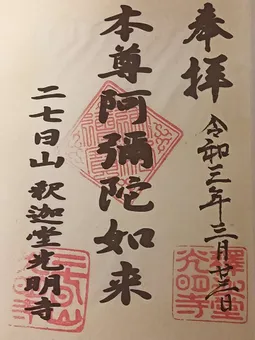 奉拝
令和三年三月廿三日
本尊阿彌陀如来
二七日山 釈迦堂光明寺